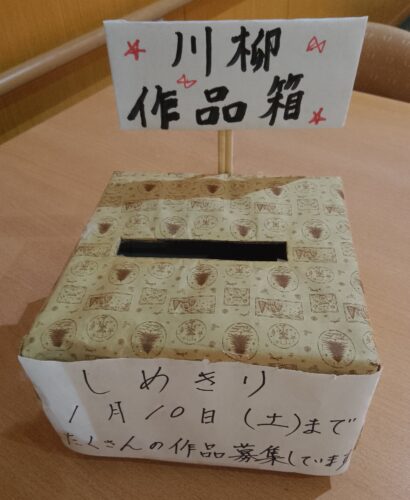 川柳
作品箱
しめきり
1月10日(土)まで
たくさんの作品募集しています